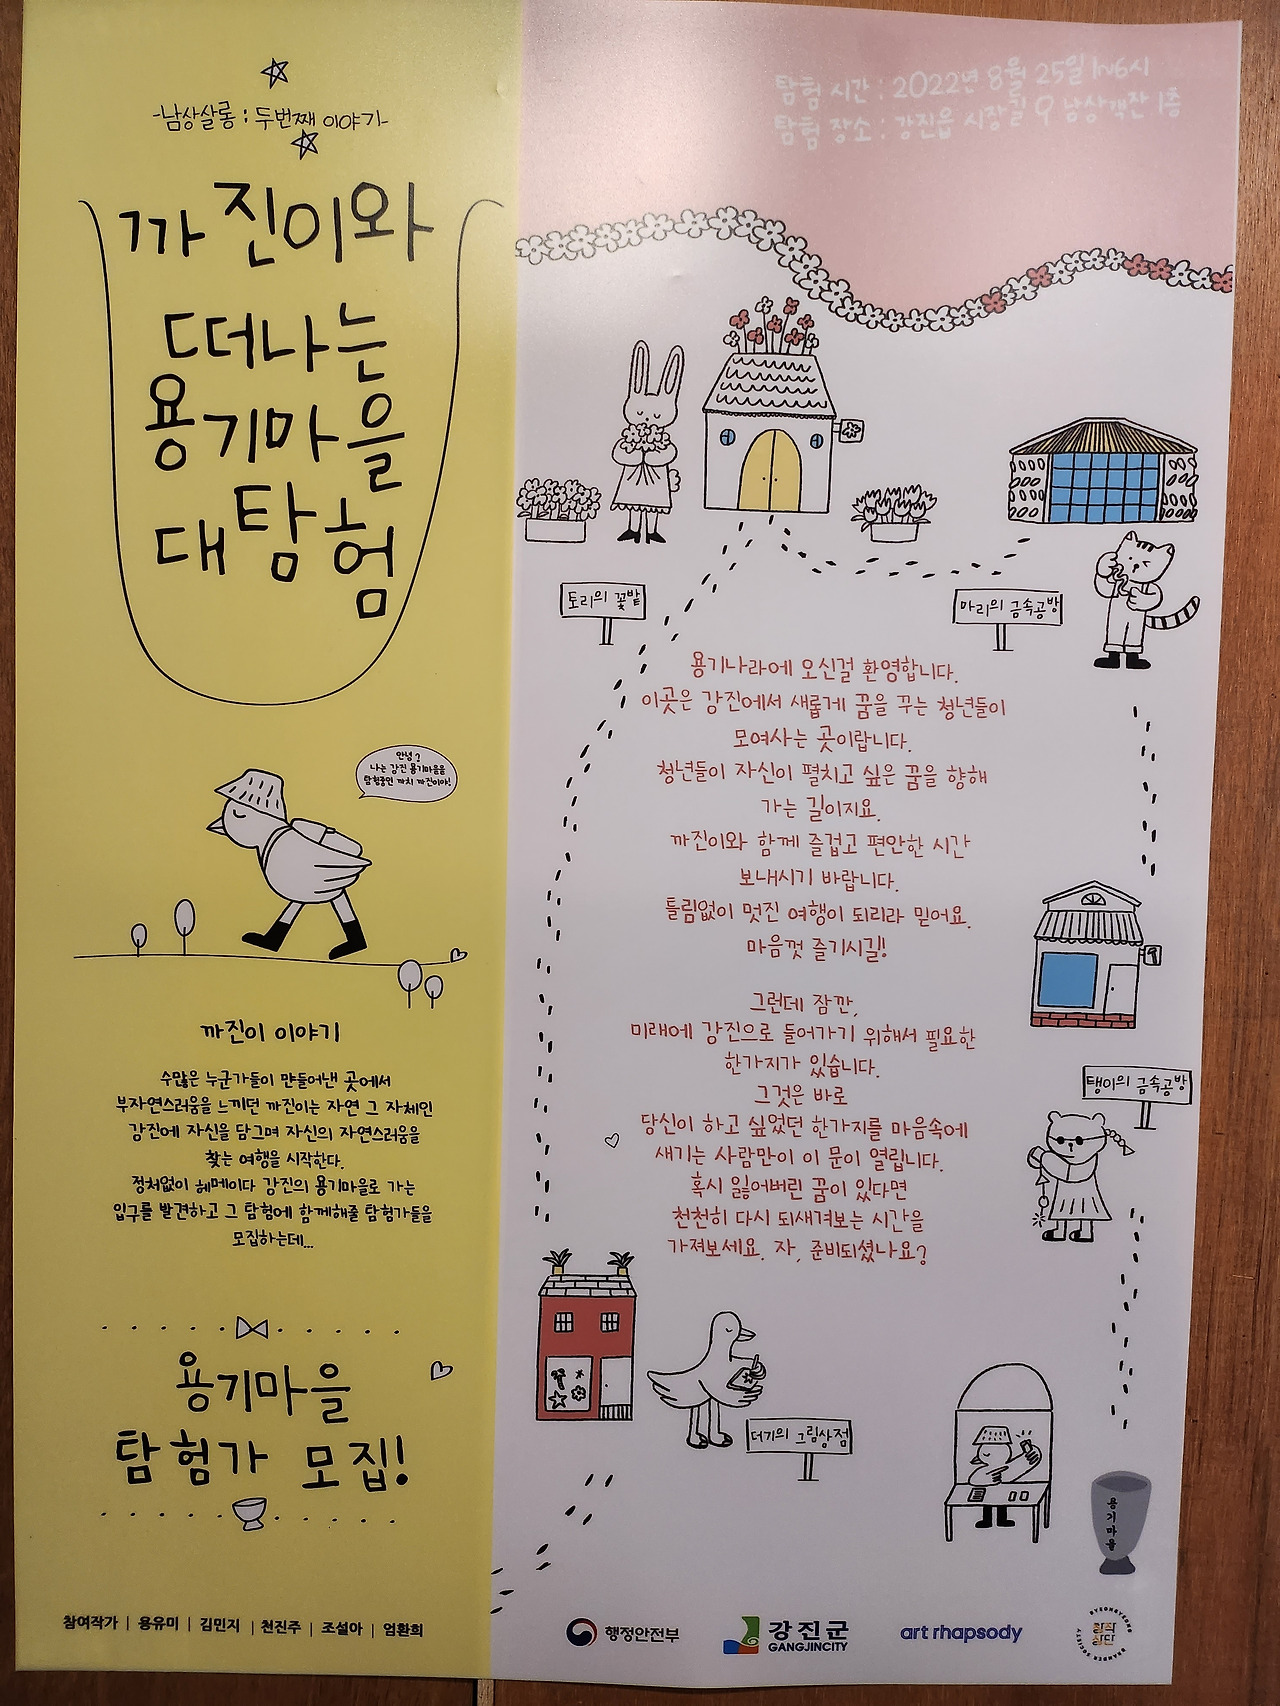 -남상살롱 : 두번째 이야기-
까진이와
떠나는
용기마을
대탐험
안녕?
나는 강진 용기마을을
탐험중인 까치 까진이야!
까진이 이야기
수많은 누군가들이 만들어낸 곳에서
부자연스러움을 느끼던 까진이는 자연 그 자체인
강진에 자신을 담그며 자신의 자연스러움을
찾는 여행을 시작한다.
정처없이 헤메이다 강진의 용기마을로 가는
입구를 발견하고 그 탐험에 함께해줄 탐험가들을
모집하는데...
용기마을
탐험가 모집!
참여작가 | 용유미 | 김민지 | 천진주 | 조설아 | 엄환희
탐험 시간 : 2022년 8월 25일 1~6시
탐험 장소 : 강진읍 시장길 9 남상객잔 1층
토리의 꽃밭
마리의 금속공방
용기나라에 오신걸 환영합니다.
이곳은 강진에서 새롭게 꿈을 꾸는 청년들이
모여사는 곳이랍니다.
청년들이 자신이 펼치고 싶은 꿈을 향해
가는 길이지요.
까진이와 함께 즐겁고 편안한 시간
보내시기 바랍니다.
틀림없이 멋진 여행이 되리라 믿어요.
마음껏 즐기시길!
그런데 잠깐,
미래에 강진으로 들어가기 위해서 필요한
한가지가 있습니다.
그것은 바로
당신이 하고 싶었던 한가지를 마음속에
새기는 사람만이 이 문이 열립니다.
혹시 잃어버린 꿈이 있다면
천천히 다시 되새겨보는 시간을
가져보세요. 자, 준비되셨나요?
탱이의 금속공방
더기의 그림상점
용기마을
행정안전부
강진군
GANGJINCITY
art rhapsody